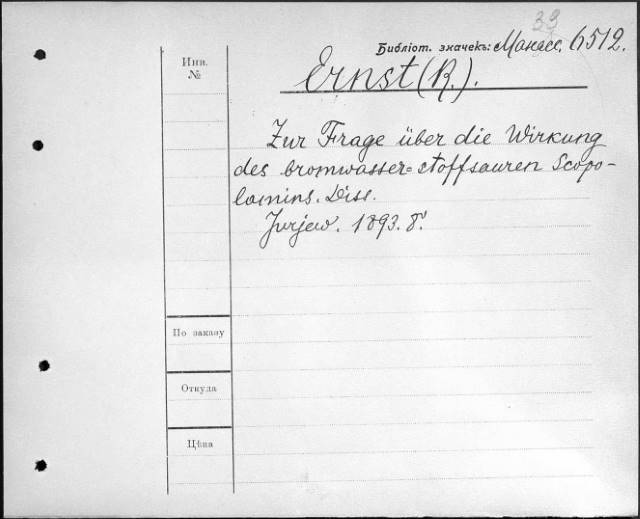 39
Библіот. значекъ: Манасс. 6512.
Инв.
№
Ernst (R.).
Zur Frage über die Wirkung
des bromwasser=stoffsauren Scopo-
lamins. Diss.
Jurjew. 1893. 8º.
По заказу
Откуда
Цѣна